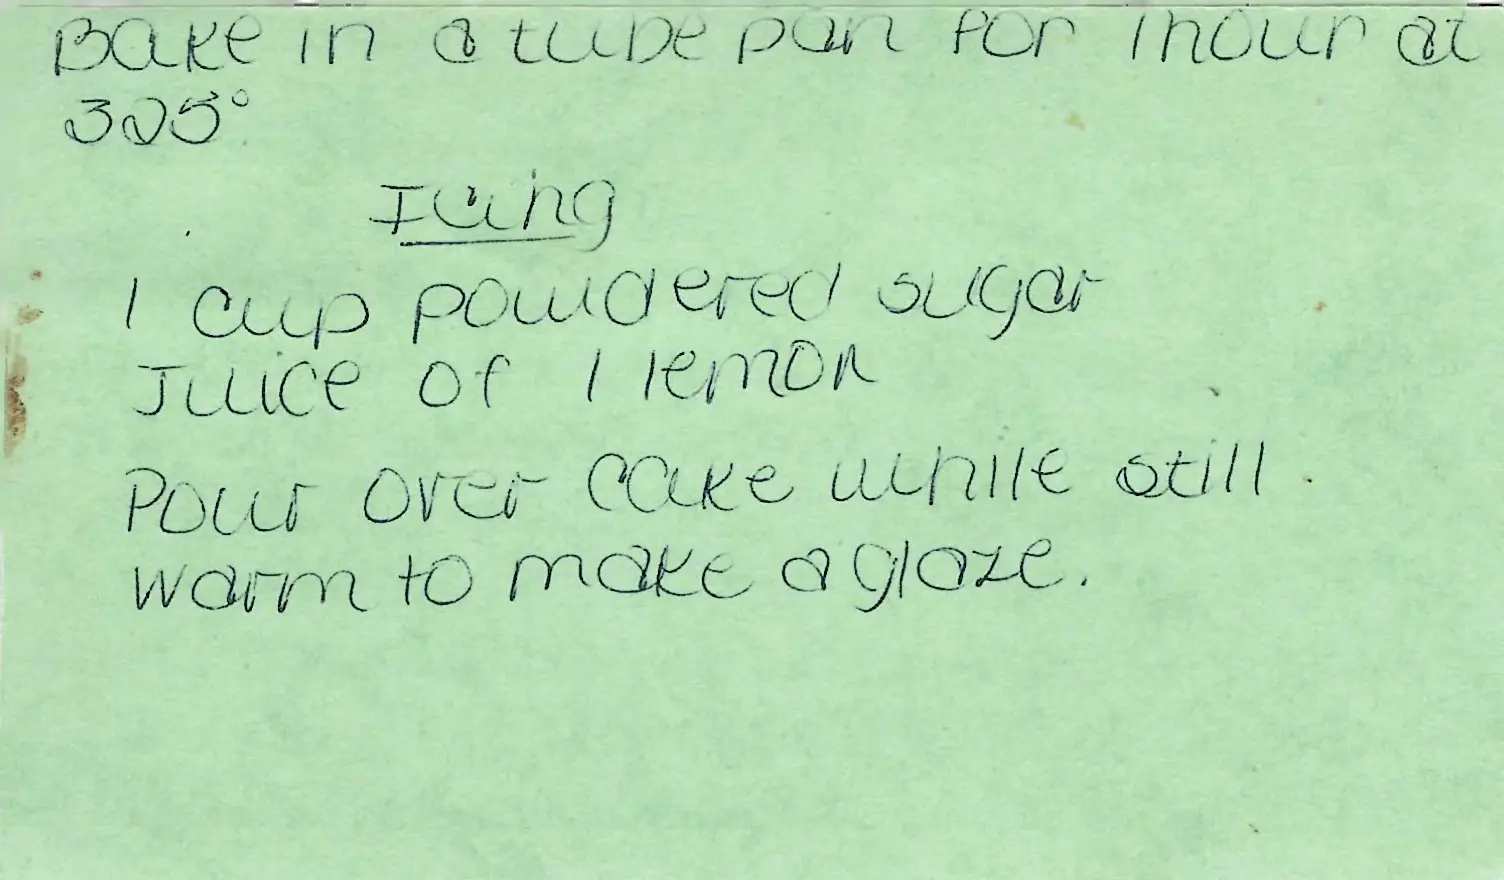 Bake in a tube pan for 1 hour at
325°
Icing
1 cup powdered sugar
Juice of 1 lemon
Pour over cake while still
warm to make a glaze.